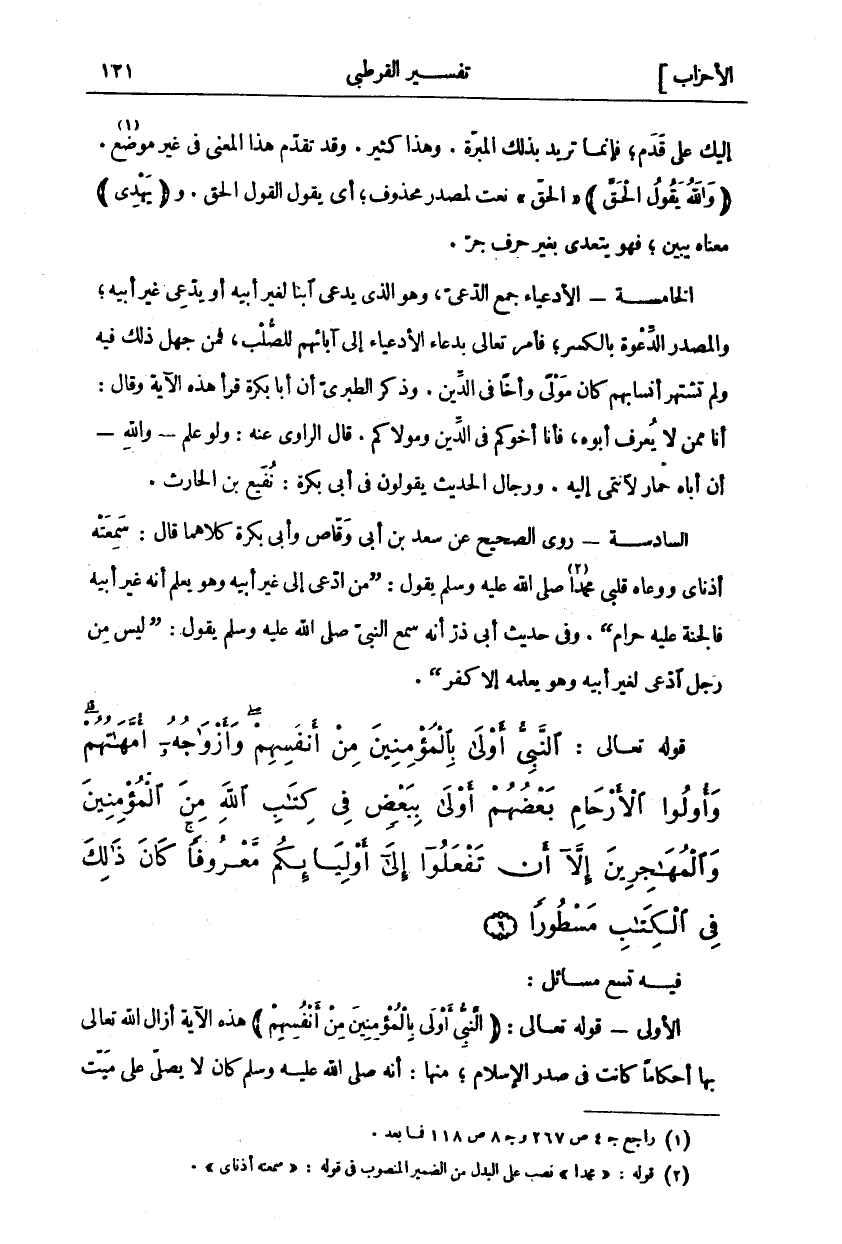 الأحزاب ] تفسير القرطبى ١٢١
إليك على قَدَم؛ فإنما تريد بذلك المبرّة . وهذا كثير . وقد تقدّم هذا المعنى فى غير موضع(١) .
﴿ وَاللهُ يَقُولُ الْحَقَّ ﴾ « الحقّ » نعت لمصدر محذوف؛ أى يقول القول الحق . و ﴿ يَهْدِى ﴾
معناه يبين ؛ فهو يتعدى بغير حرف جرّ .
الخامسة — الأدعياء جمع الدّعىّ ، وهو الذى يدعى آبنا لغير أبيه أو يدّعِى غير أبيه ؛
والمصدر الدِّعْوة بالكسر؛ فأمر تعالى بدعاء الأدعياء إلى آبائهم للصُّلْب ، فمن جهل ذلك فيه
ولم تشتهر أنسابهم كان مَوْلًى وأخًا فى الدِّين . وذكر الطبرىّ أن أبا بكرة قرأ هذه الآية وقال :
أنا ممن لا يُعرف أبوه، فأنا أخوكم فى الدِّين ومولاكم . قال الراوى عنه : ولو علم — واللهِ —
أن أباه حمار لآنتمى إليه . ورجال الحديث يقولون فى أبى بكرة : نُفَيع بن الحارث .
السادسة — روى الصحيح عن سعد بن أبى وَقّاص وأبى بكرة كلاهما قال : سَمِعَتْه
أذناى ووعاه قلبى محمدا(٢) صلى الله عليه وسلم يقول : ”من ادّعى إلى غير أبيه وهو يعلم أنه غير أبيه
فالجنة عليه حرام“ . وفى حديث أبى ذرّ أنه سمع النبىّ صلى الله عليه وسلم يقول : ”ليس مِن
رجل آدّعى لغير أبيه وهو يعلمه إلا كفر“ .
قوله تعالى : ٱلنَّبِيُّ أَوْلَىٰ بِٱلْمُؤْمِنِينَ مِنْ أَنفُسِهِمْ ۖ وَأَزْوَٰجُهُۥٓ أُمَّهَٰتُهُمْ ۗ
وَأُولُوا ٱلْأَرْحَامِ بَعْضُهُمْ أَوْلَىٰ بِبَعْضٍ فِى كِتَٰبِ ٱللَّهِ مِنَ ٱلْمُؤْمِنِينَ
وَٱلْمُهَٰجِرِينَ إِلَّآ أَن تَفْعَلُوٓا إِلَىٰٓ أَوْلِيَآئِكُم مَّعْرُوفًا ۚ كَانَ ذَٰلِكَ
فِى ٱلْكِتَٰبِ مَسْطُورًا ٦
فيه تسع مسائل :
الأولى — قوله تعالى : ﴿ النَّبِىُّ أَوْلَى بِالْمُؤْمِنِينَ مِنْ أَنْفُسِهِمْ ﴾ هذه الآية أزال الله تعالى
بها أحكاماً كانت فى صدر الإسلام ؛ منها : أنه صلى الله عليه وسلم كان لا يصلّى على ميّت
(١) راجع جـ ٤ ص ٢٦٧ وجـ ٨ ص ١١٨ فما بعد .
(٢) قوله : « محمدا » نصب على البدل من الضمير المنصوب فى قوله : « سمعته أذناى » .